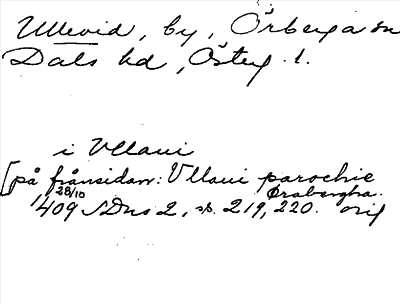 Ullevid, by, Örberga sn
Dals hd, Österg. l.
i Vllaui
[på frånsidan: Vllaui parochie
Ørabergha.
28/10
1409 SDns 2, s. 219, 220. orig